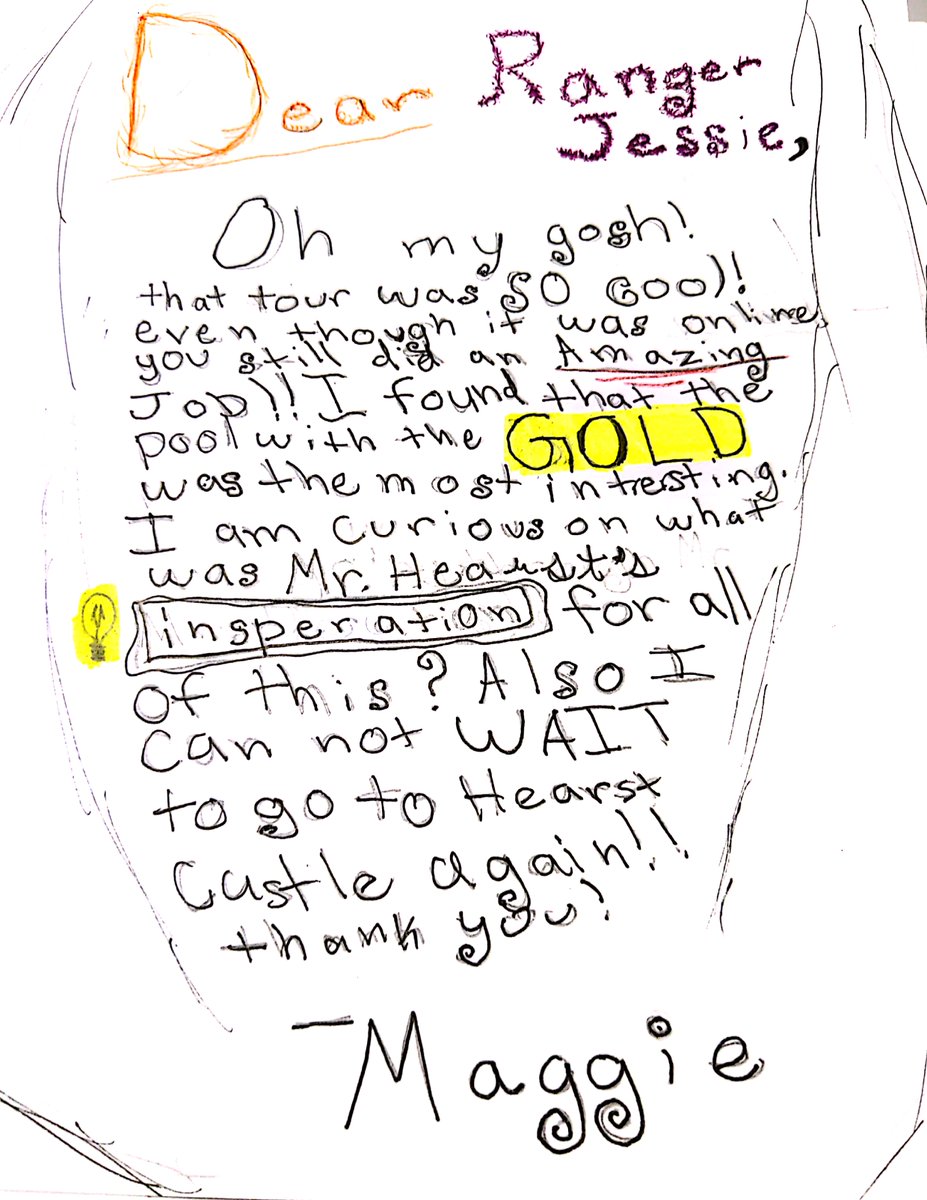 Dear Ranger
Jessie,
Oh my gosh!
that tour was SO GOOD!
even though it was online
you still did an Amazing
Job!! I found that the
pool with the GOLD
was the most intresting.
I am curious on what
was Mr. Hearst's
insperation for all
of this? Also I
can not WAIT
to go to Hearst
Castle again!!
thank you!
—Maggie